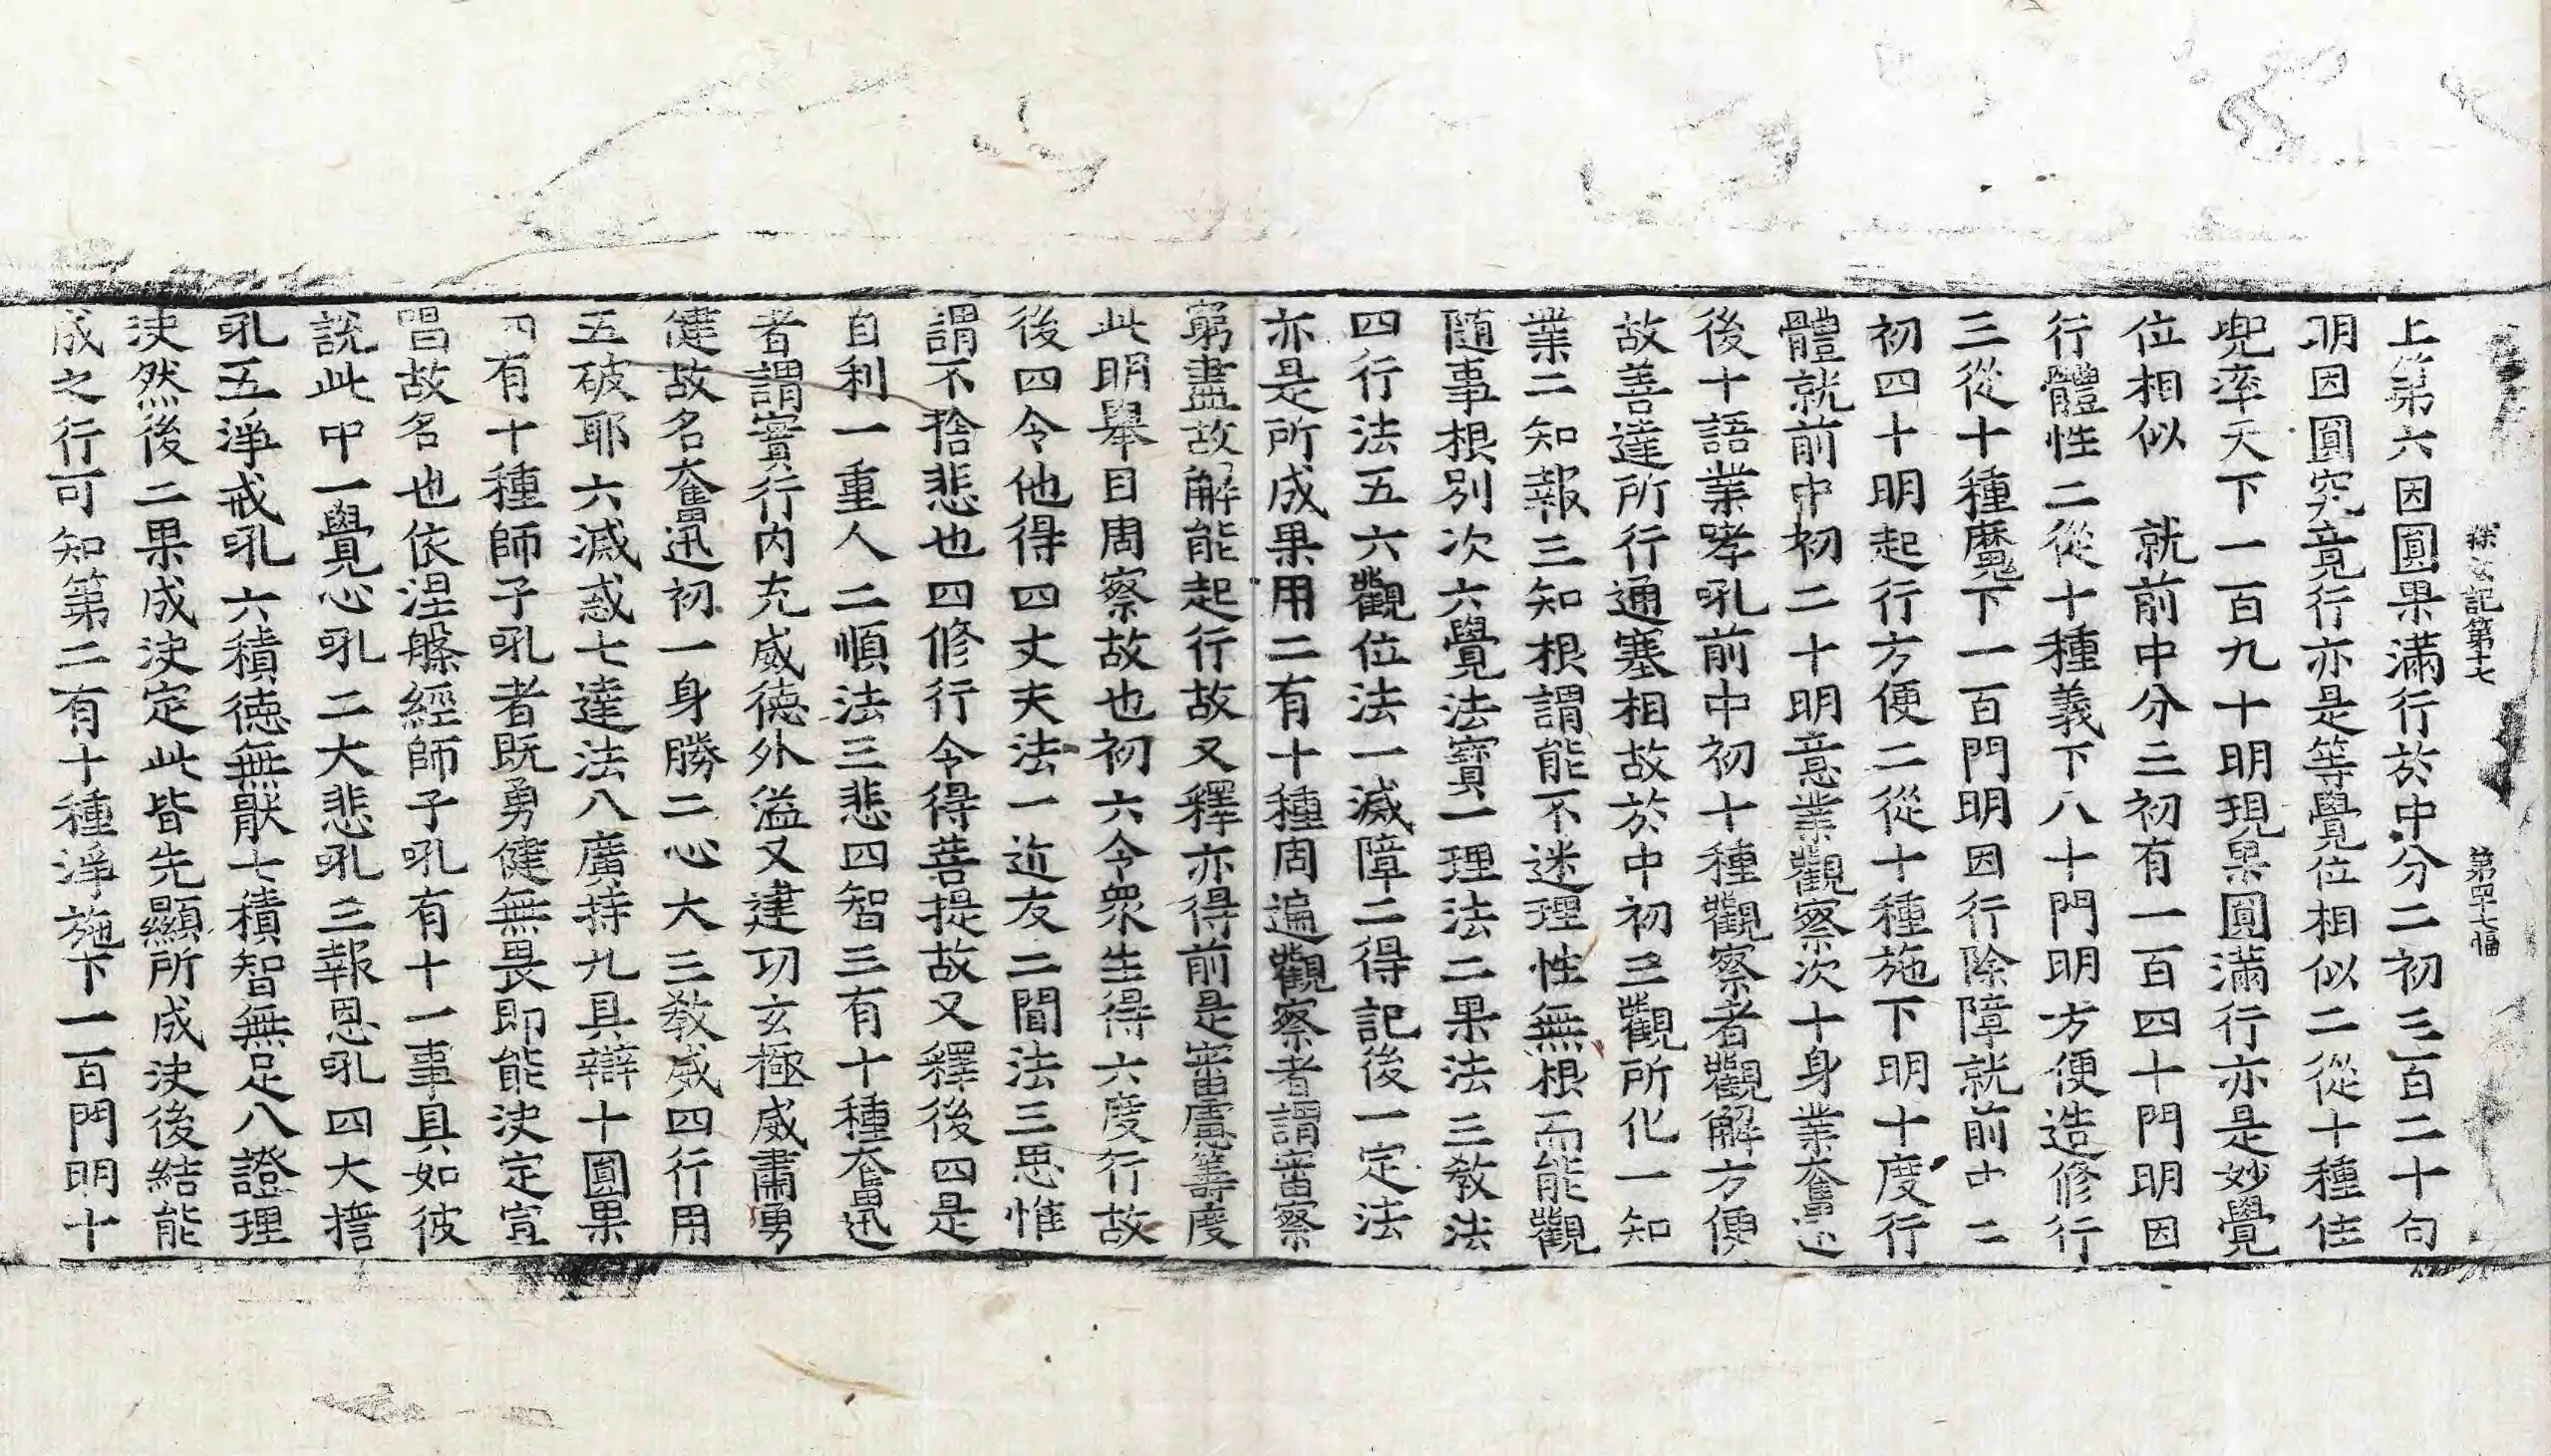 探玄記第十七　第四十七幅
上來第六因圓果滿行於中分二初三百二十句
明因圓究竟行亦是等覺位相似二從十種住
兜率天下一百九十明現果圓滿行亦是妙覺
位相似　就前中分三初有一百四十門明因
行體性二從十種義下八十門明方便造修行
三從十種魔下一百門明因行除障就前中二
初四十明起行方便二從十種施下明十度行
體就前中初二十明意業觀察次十身業奮迅
後十語業哮吼前中初十種觀察者觀解方便
故善達所行通塞相故於中初三觀所化一知
業二知報三知根謂能不迷理性無根而能觀
隨事根別次六覺法寶一理法二果法三教法
四行法五六觀位法一滅障二得記後一定法
亦是所成果用二有十種周遍觀察者謂審察
窮盡故解能起行故又釋亦得前是審慮籌度
此明舉目周察故也初六令衆生得六度行故
後四令他得四丈夫法一近友二聞法三思惟
謂不捨悲也四修行令得菩提故又釋後四是
自利一重人二順法三悲四智三有十種奮迅
者謂實行內充威德外溢又建功玄極威肅勇
健故名奮迅初一身勝二心大三教威四行用
五破耶六滅惑七達法八廣持九具辯十圓果
四有十種師子吼者既勇健無畏即能決定宣
唱故名也依涅槃經師子吼有十一事具如彼
說此中一覺心吼二大悲吼三報恩吼四大擔
吼五淨戒吼六積德無猒七積智無足八證理
決然後二果成決定此皆先顯所成決後結能
成之行可知第二有十種淨施下一百門明十